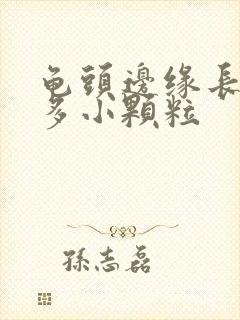 龟頭邊缘長
多小顆粒
孫志磊